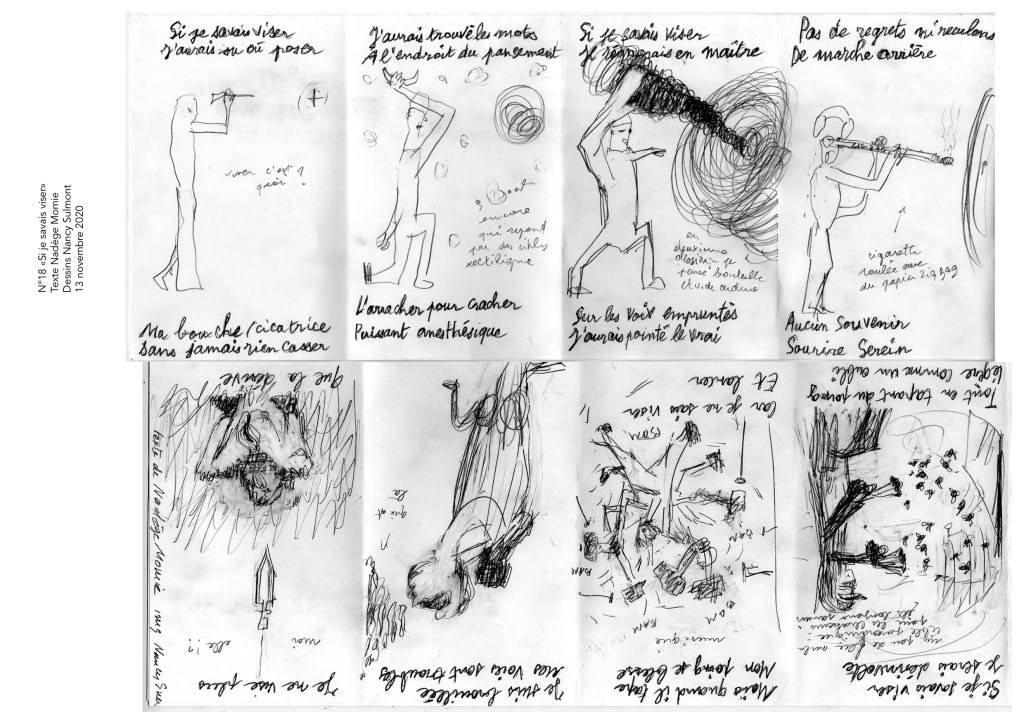 N°18 «Si je savais viser»
Texte Nadège Momie
Dessins Nancy Sulmont
13 novembre 2020
Si je savais viser
J'aurais su où poser
viser c'est
quoi ?
Ma bouche/cicatrice
Sans jamais rien casser
J'aurais trouvé les mots
A l'endroit du pansement
encore
qui répond
par des cibles
L'arracher pour cracher
Puissant anesthésique
Si je savais viser
Je règnerais en maître
en
deuxième
dessin je
pense bouteille
et vide ordure
Sur les voix empruntés
J'aurais pointé le vrai
Pas de regrets ni reculons
De marche arrière
cigarette
roulée avec
du papier zigzag
Aucun Souvenir
Sourire Serein
Si je savais viser
Je serais désinvolte
Tout en tapant du poing
Légère comme un oubli
Mais quand il tape
Mon poing se blesse
musique
BAM
BAM
BAM
BAM
BAM
Car je ne sais viser
Et lancer
Je suis brouillée
Mes voix sont troubles
qui est
là
Je ne vise plus
moi
elle !?
Que la dérive
texte de Nadège Momie img Nancy Sue